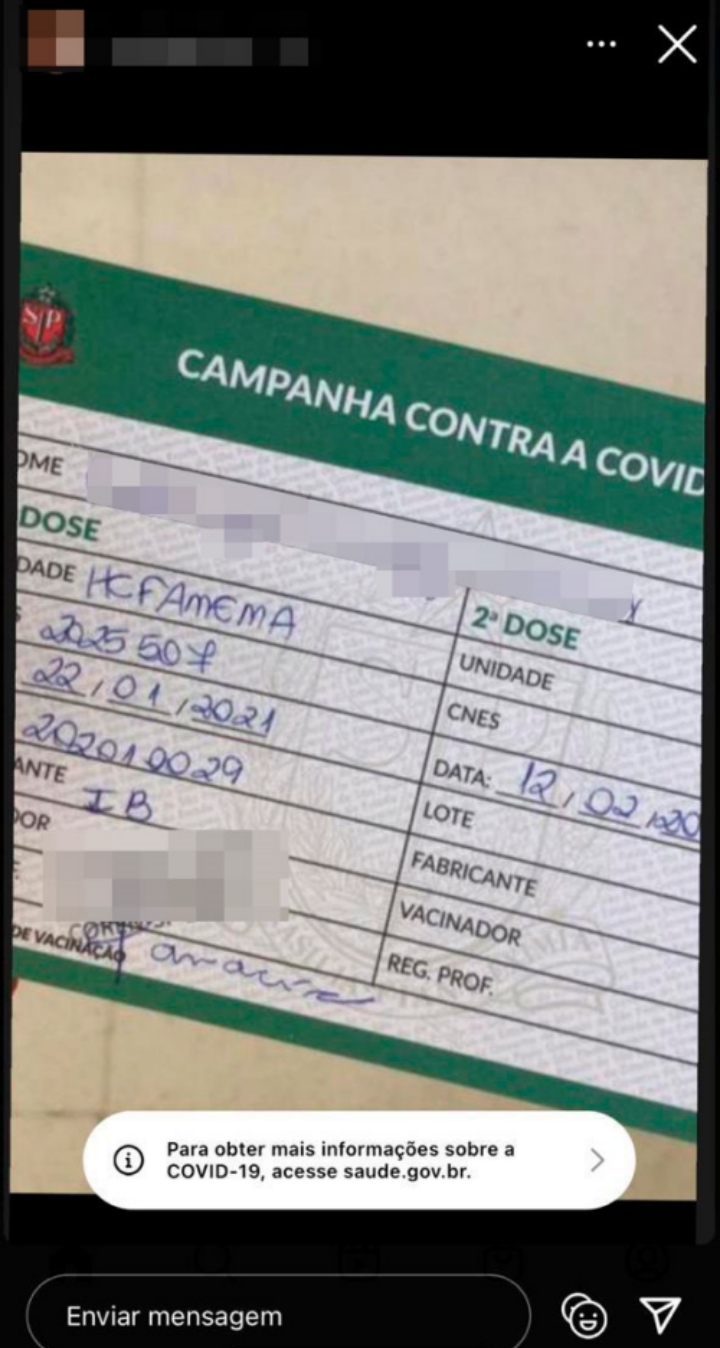 SP
CAMPANHA CONTRA A COVID
OME
DOSE
DADE HCFAMEMA
2025507
22/01/2021
202010029
ANTE IB
DOR
DE VACINAÇÃO
2ª DOSE
UNIDADE
CNES
DATA: 12/02/20
LOTE
FABRICANTE
VACINADOR
REG. PROF.
Para obter mais informações sobre a
COVID-19, acesse saude.gov.br.
Enviar mensagem